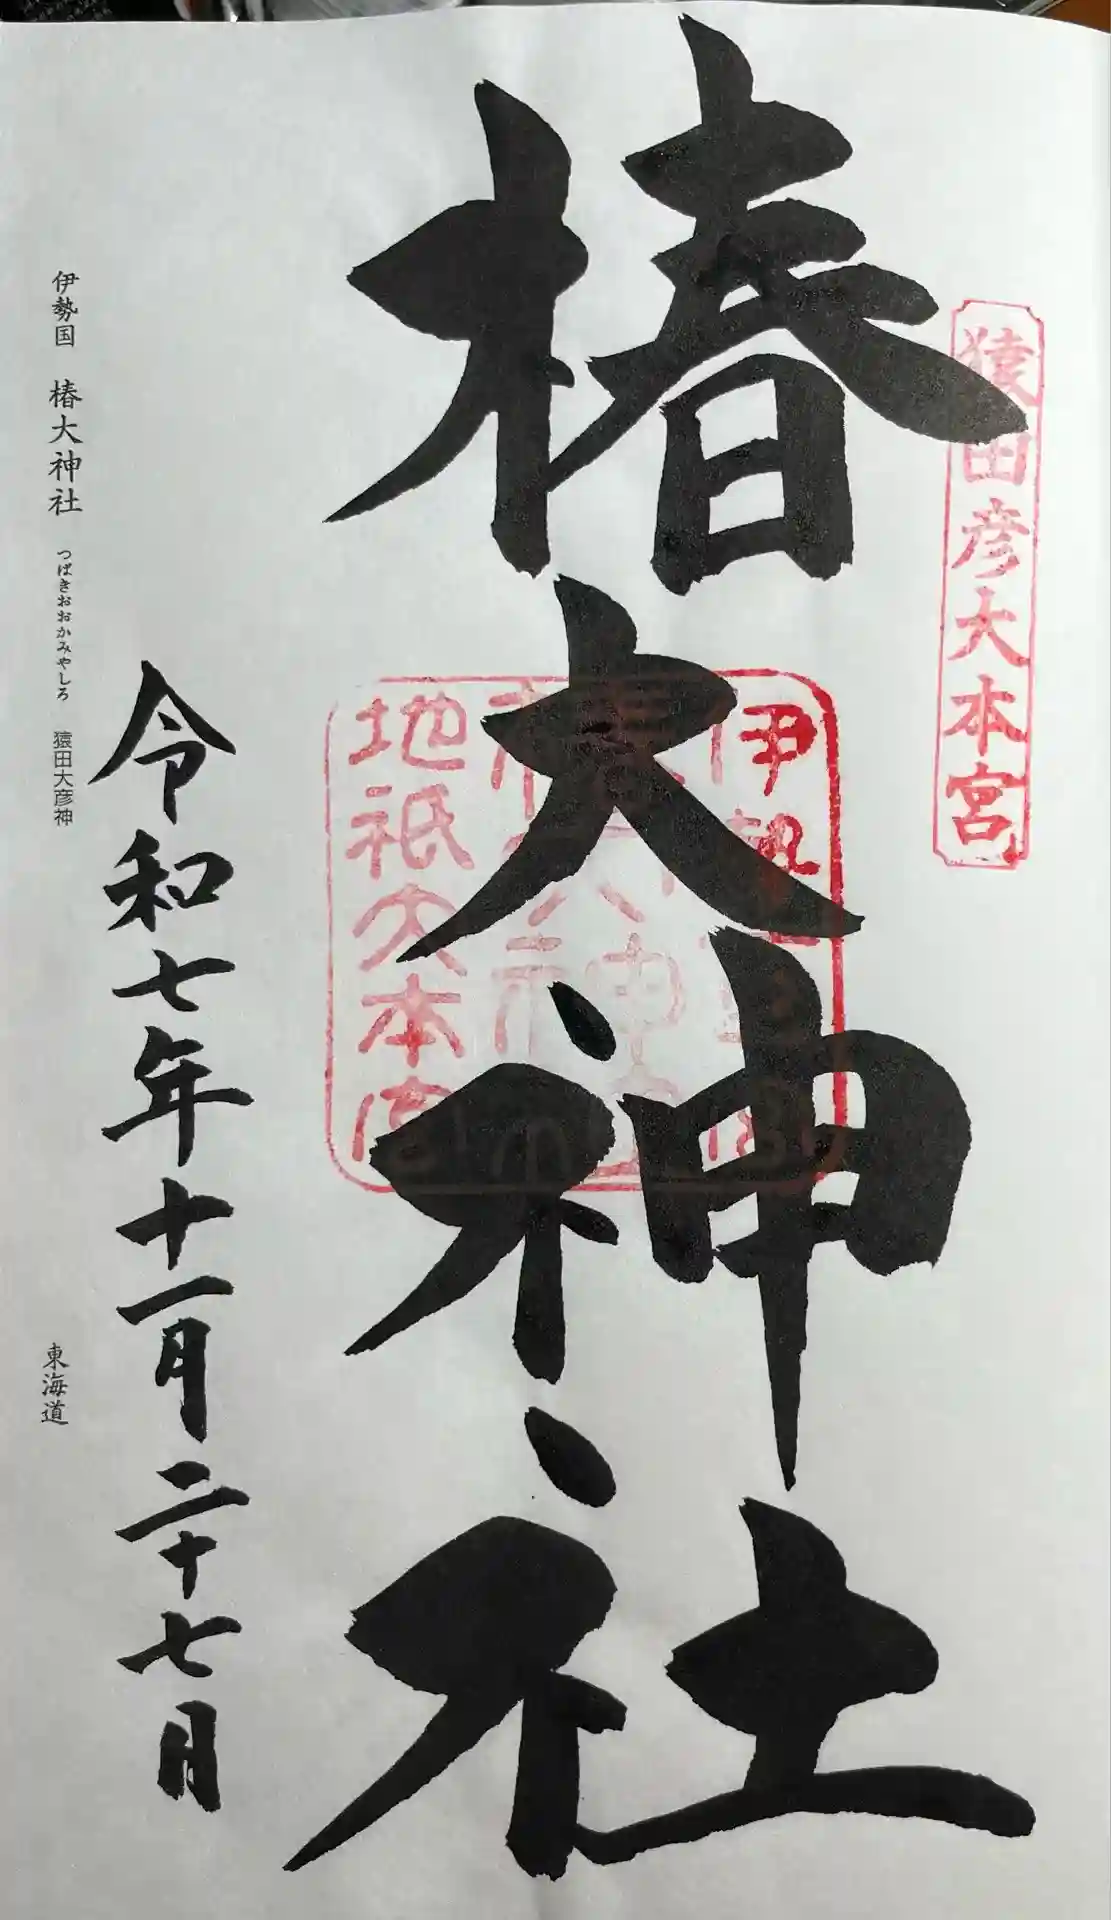 猿田彦大本宮
椿大神社
地祇大本宮
令和七年十一月二十七日
伊勢国 椿大神社 つばきおおかみやしろ 猿田大彦神
東海道